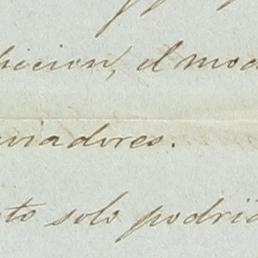 hicion, el mod
uiadores.
to solo podria